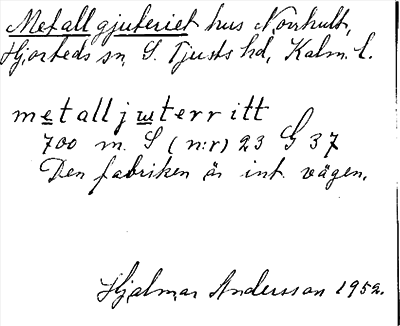 Metallgjuteriet hus Norrhult,
Hjorteds sn, S. Tjusts hd, Kalm. l.
metalljuterritt
700 m. S (n:r) 23 G 37
Den fabriken är int. vägen.
Hjalmar Andersson 1952.